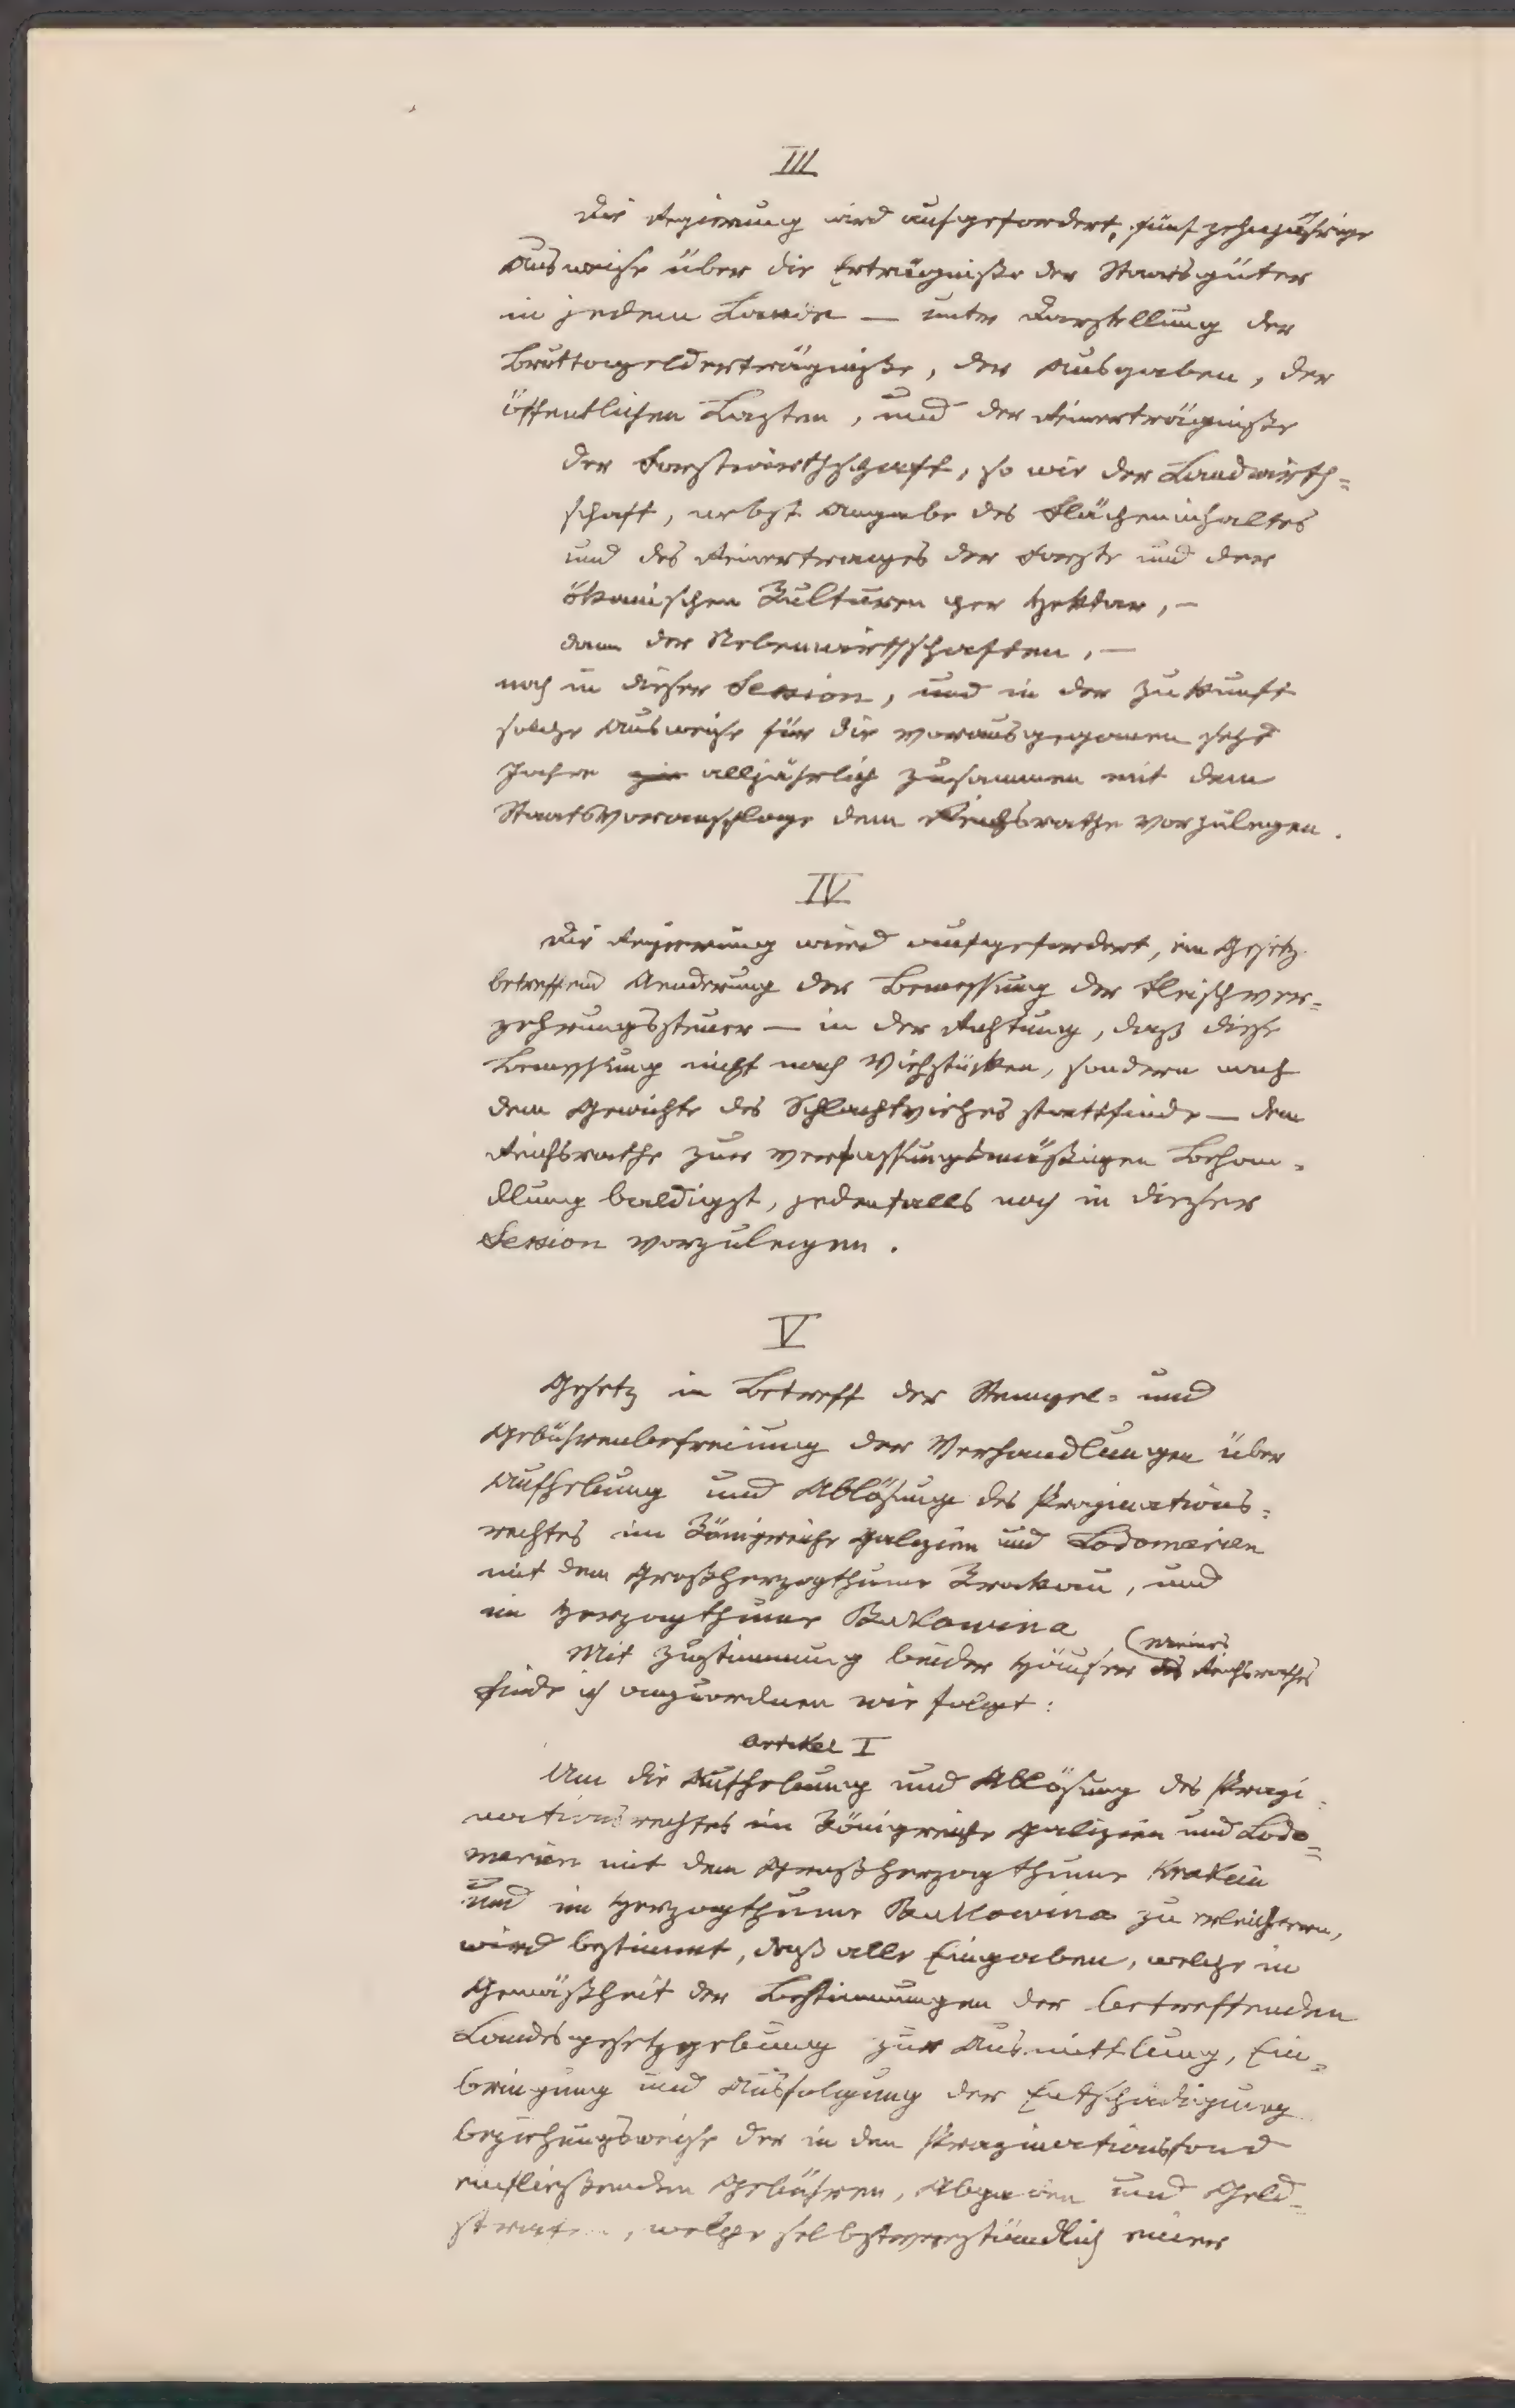 III
Die Regierung wird aufgefordert, fünfzehnjährige
Ausweise über die Erträgniße der Staatsgüter
in jedem Lande — unter Darstellung der
Bruttogelderträgniße, der Ausgaben, der
öffentlichen Lasten, und der Reinerträgniße
der Forstwirthschaft, so wie der Landwirth=
schaft, nebst Angabe des Flächeninhaltes
und des Reinertrages der Forste und der
ökonischen Kulturen per Hektar, —
dann der Nebenwirthschaften, —
noch in dieser Session, und in der Zukunft
solche Ausweise für die vorausgegangenen sechs
Jahre alljährlich zusammen mit dem
Staatsvoranschlage dem Reichsrathe vorzulegen.
IV
Die Regierung wird aufgefordert, ein Gesetz
betreffend Aenderung der Bemessung der Fleischver=
zehrungssteuer — in der Richtung, daß diese
Bemessung nicht nach Viehstücken, sondern nach
dem Gewichte des Schlachtviehes stattfinde — dem
Reichsrathe zur verfassungsmäßigen Behan=
dlung baldigst, jedenfalls noch in dieser
Session vorzulegen.
V
Gesetz in Betreff der Stempel= und
Gebührenbefreiung der Verhandlungen über
Aufhebung und Ablösung des Propinations=
rechtes im Königreiche Galizien und Lodomerien
mit dem Großherzogthume Krakau, und
im Herzogthume Bukowina
Mit Zustimmung beider Häuser des (meines Reichsrathes
finde ich anzuordnen wie folgt:
Artikel I
Um die Aufhebung und Ablösung des Propi=
nationsrechtes im Königreiche Galizien und Lodo=
merien mit dem Großherzogthume Krakau
und im Herzogthume Bukowina zu erleichtern,
wird bestimmt, daß alle Eingaben, welche in
Gemäßheit der Bestimmungen der betreffenden
Landesgesetzgebung zur Ausmittlung, Ein=
bringung und Ausfolgung der Entschädigung
beziehungsweise der in den Propinationsfond
einfließenden Gebühren, Abgaben und Geld=
strafen, welche selbstverständlich einer